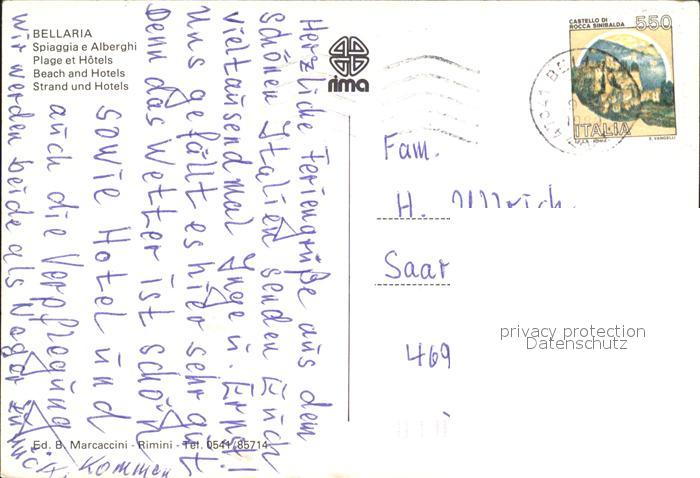 BELLARIA
Spiaggia e Alberghi
Plage et Hôtels
Beach and Hotels
Strand und Hotels
rima
CASTELLO DI
ROCCA SINIBALDA
550
ITALIA
Herzliche Feriengrüße aus dem
schönen Italien senden Euch
vieltausendmal Inge u. Ernst!
Uns gefällt es hier sehr gut
Denn das Wetter ist schön
sowie Hotel und
auch die Verpflegung
Wir werden beide als Neger zurück
kommen
Fam.
H. Ullrich
Saar
469
privacy protection
Datenschutz
Ed. B. Marcaccini - Rimini - Tel. 0541/85714